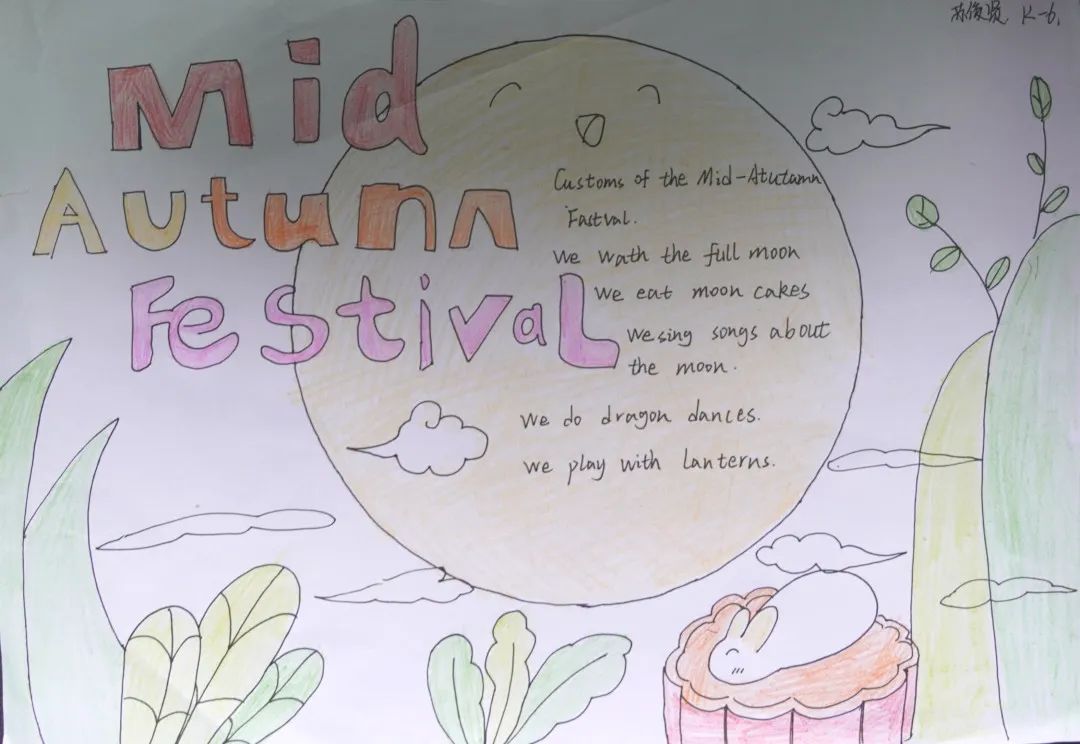 苏俊贤 K-6.
Mid
Autunn
Festival
Customs of the Mid-Atutamn
Fastval.
We wath the full moon
We eat moon cakes
We sing songs about
the moon.
We do dragon dances.
We play with lanterns.